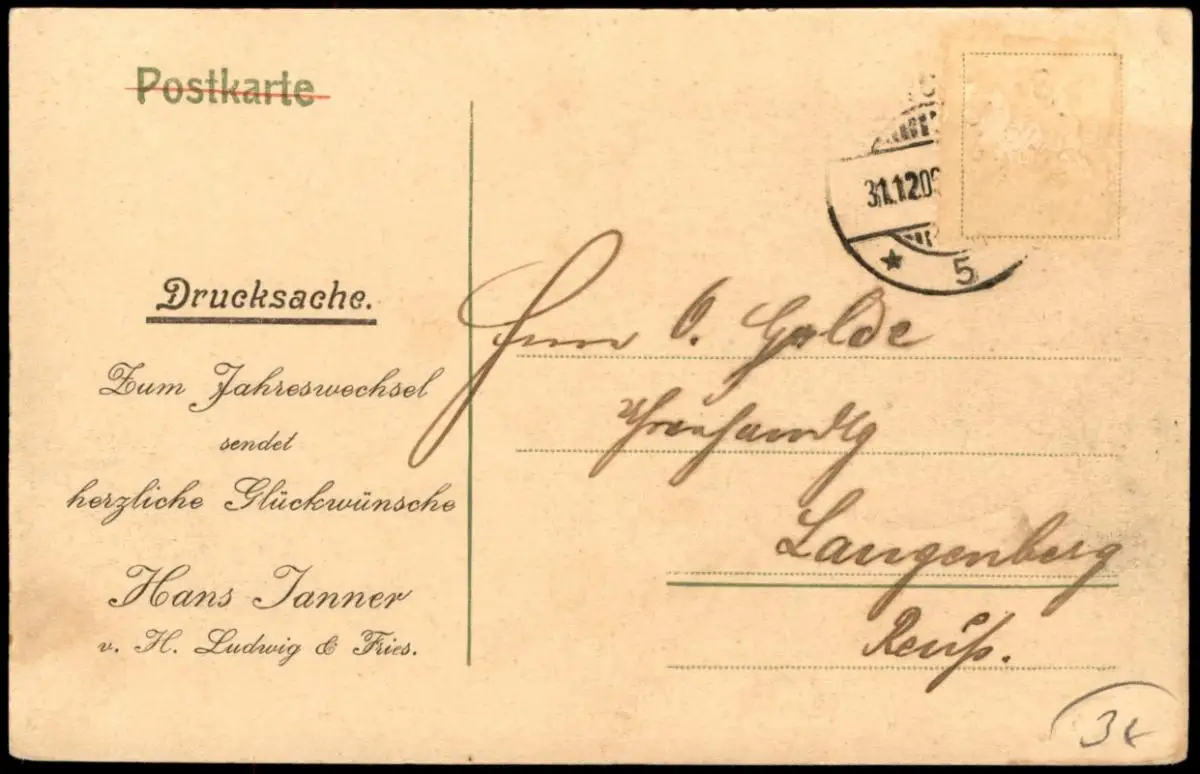 Postkarte
31.12.09
★ 5
Drucksache.
Zum Jahreswechsel
sendet
herzliche Glückwünsche
Hans Tanner
v. H. Ludwig & Fries.
Herrn O. Golde
Langenberg
Reuß.
3€